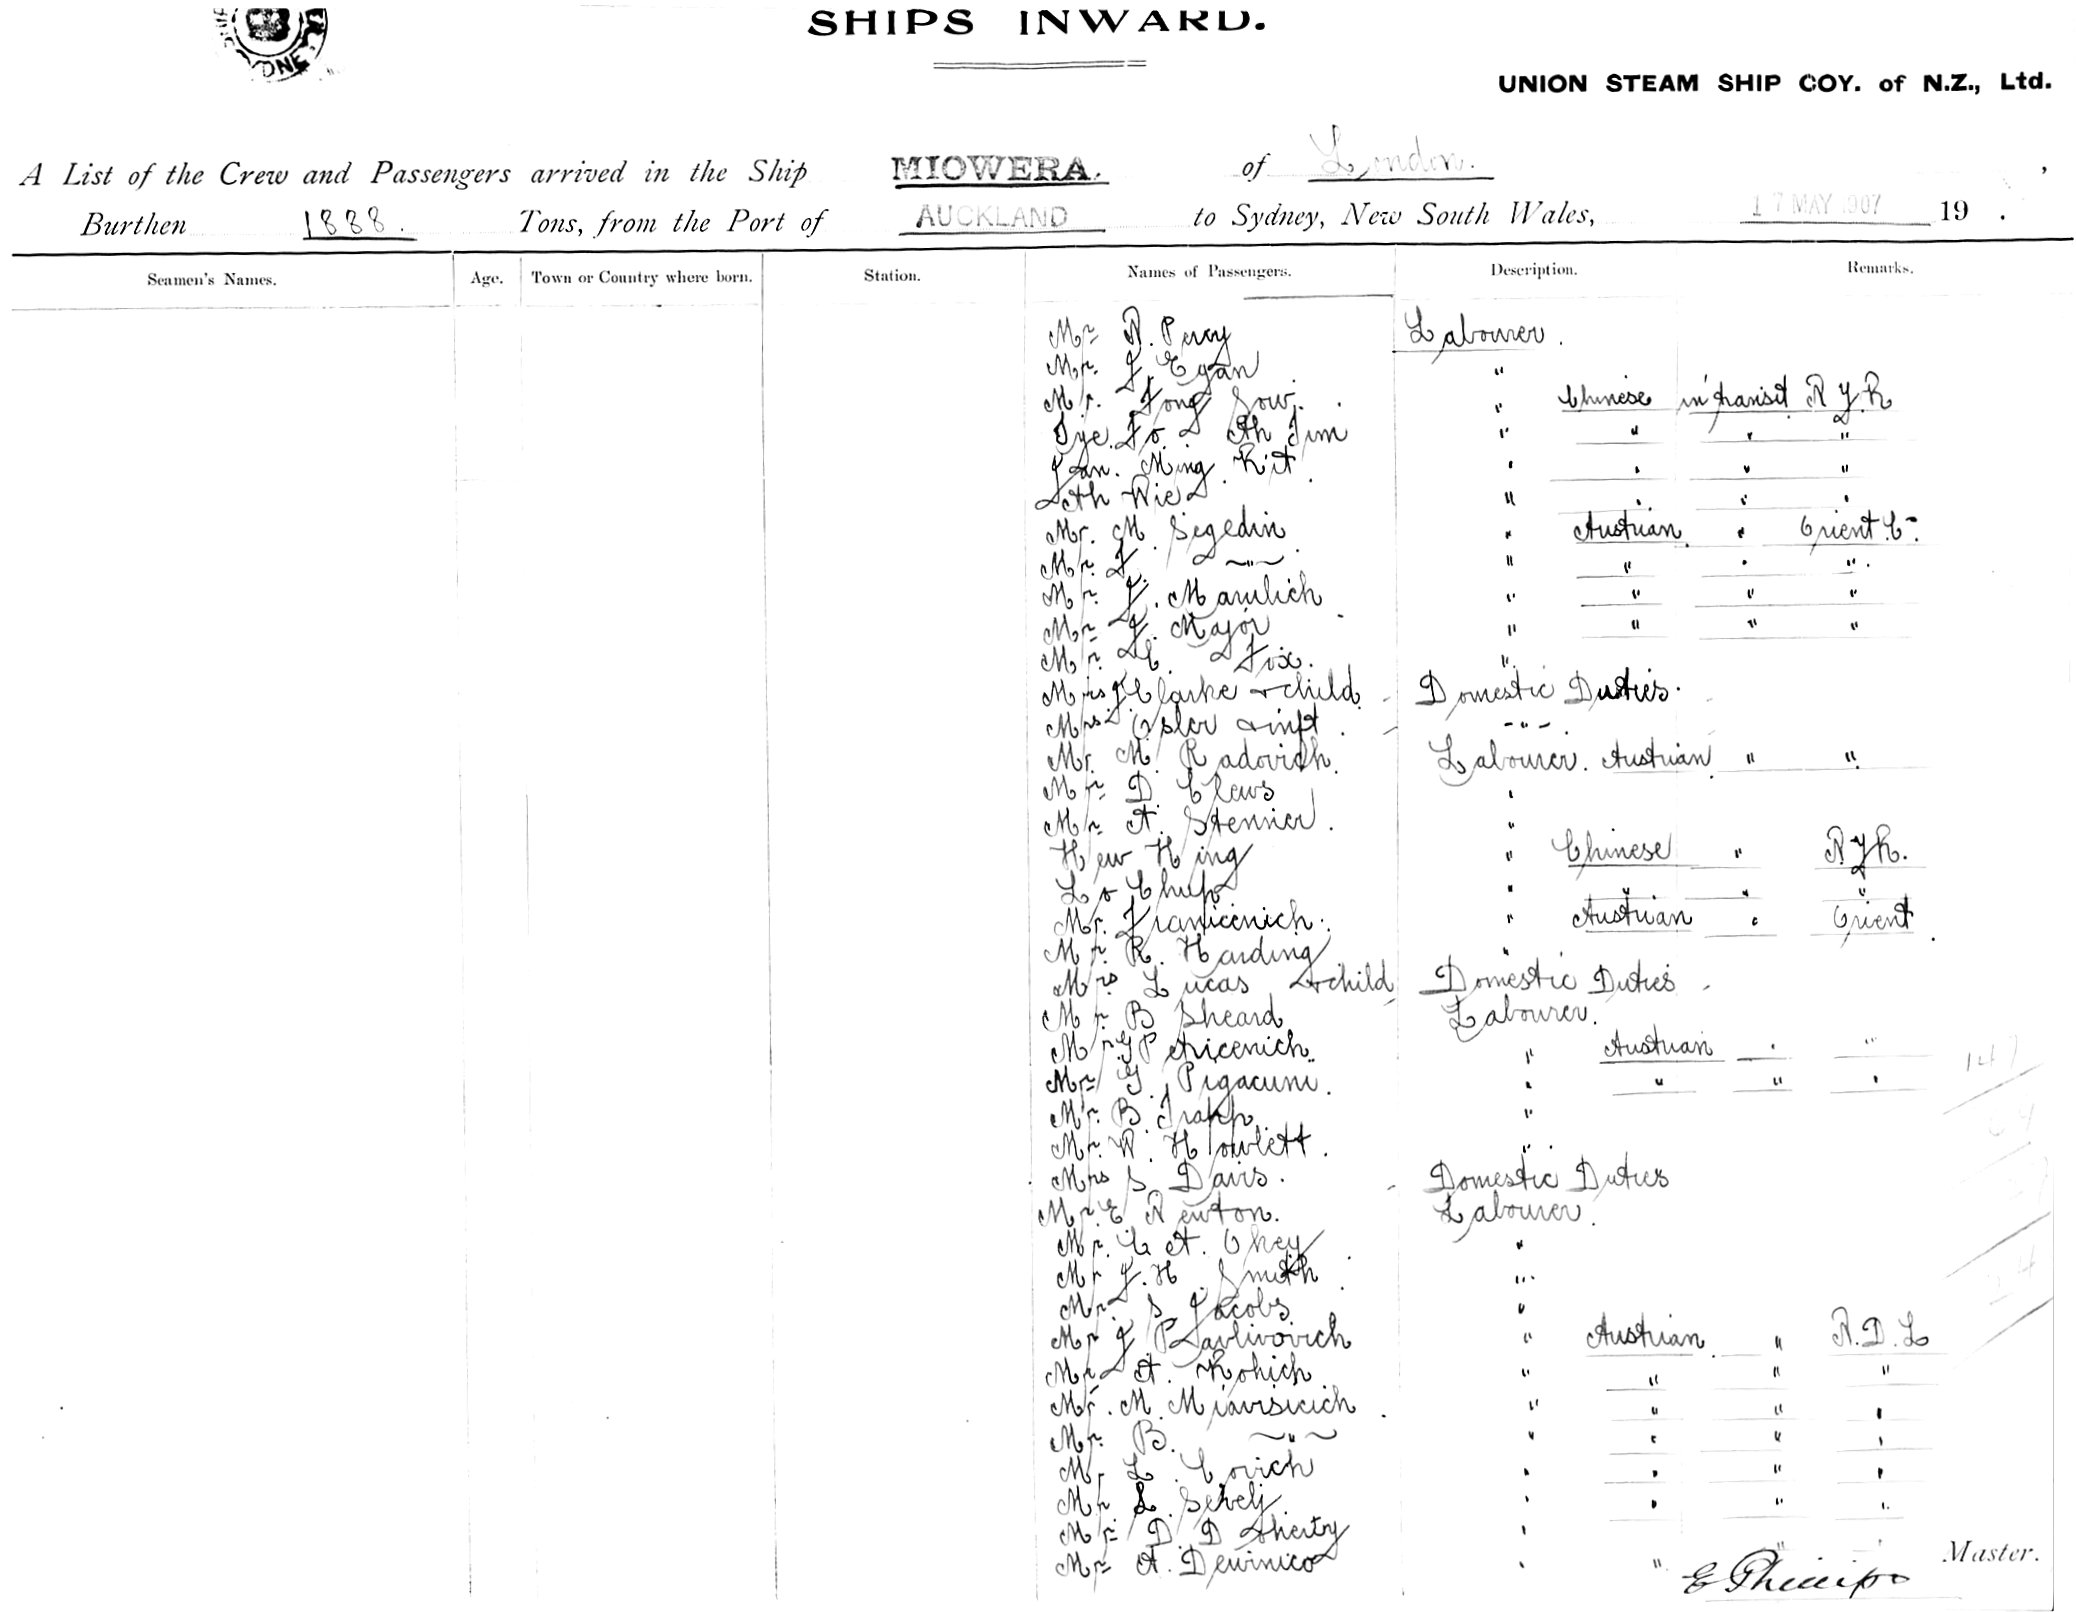 SHIPS INWARD.
ONE
UNION STEAM SHIP COY. of N.Z., Ltd.
A List of the Crew and Passengers arrived in the Ship MIOWERA. of London.
Burthen 1888. Tons, from the Port of AUCKLAND to Sydney, New South Wales, 17 MAY 1907 19 .
Seamen's Names. Age. Town or Country where born. Station. Names of Passengers. Description. Remarks.
Mr N. Percy Labourer.
Mr. J. Egan "
Mr. Fong Sow. " Chinese in transit N Y K
Tye Fo. Ah Jim " " " "
Jan. Ming Kit " " " "
Ah Wie " " " "
Mr. M. Segedin " Austrian " Orient Co.
Mr. J. " " " " "
Mr. J. Marulich " " " "
Mr J. Major " " " "
Mr. C. Fox. "
Mrs J Clarke & child Domestic Duties.
Mrs Osler & inft. "
Mr. M. Radovich. Labourer. Austrian " "
Mr D. Clews "
Mr A. Stenner. "
Hew Hing " Chinese " N Y K.
Lo Chup " " " "
Mr. Franicenich. " Austrian " Orient
Mr. R. Harding "
Mrs Lucas & child Domestic Duties
Mr. B Sheard Labourer.
Mr G Petricenich. " Austrian " "
Mr G. Pigacuni. " " " "
Mr. B. Trapp. "
Mr. W. Howlett. "
Mrs S Davis. Domestic Duties
Mr. E Newton. Labourer.
Mr. C A. Okey "
Mr J. H. Smith "
Mr. S Jacobs "
Mr J Pavlivovich " Austrian " N. D. L
Mr A. Kohich " " " "
Mr. M. Miavisicich " " " "
Mr. B. " " " " "
Mr L. Covich " " " "
Mr L. Sevelj " " " "
Mr D. Doherty "
Mr A. Dewinico " " " "
E Phillips Master.
147